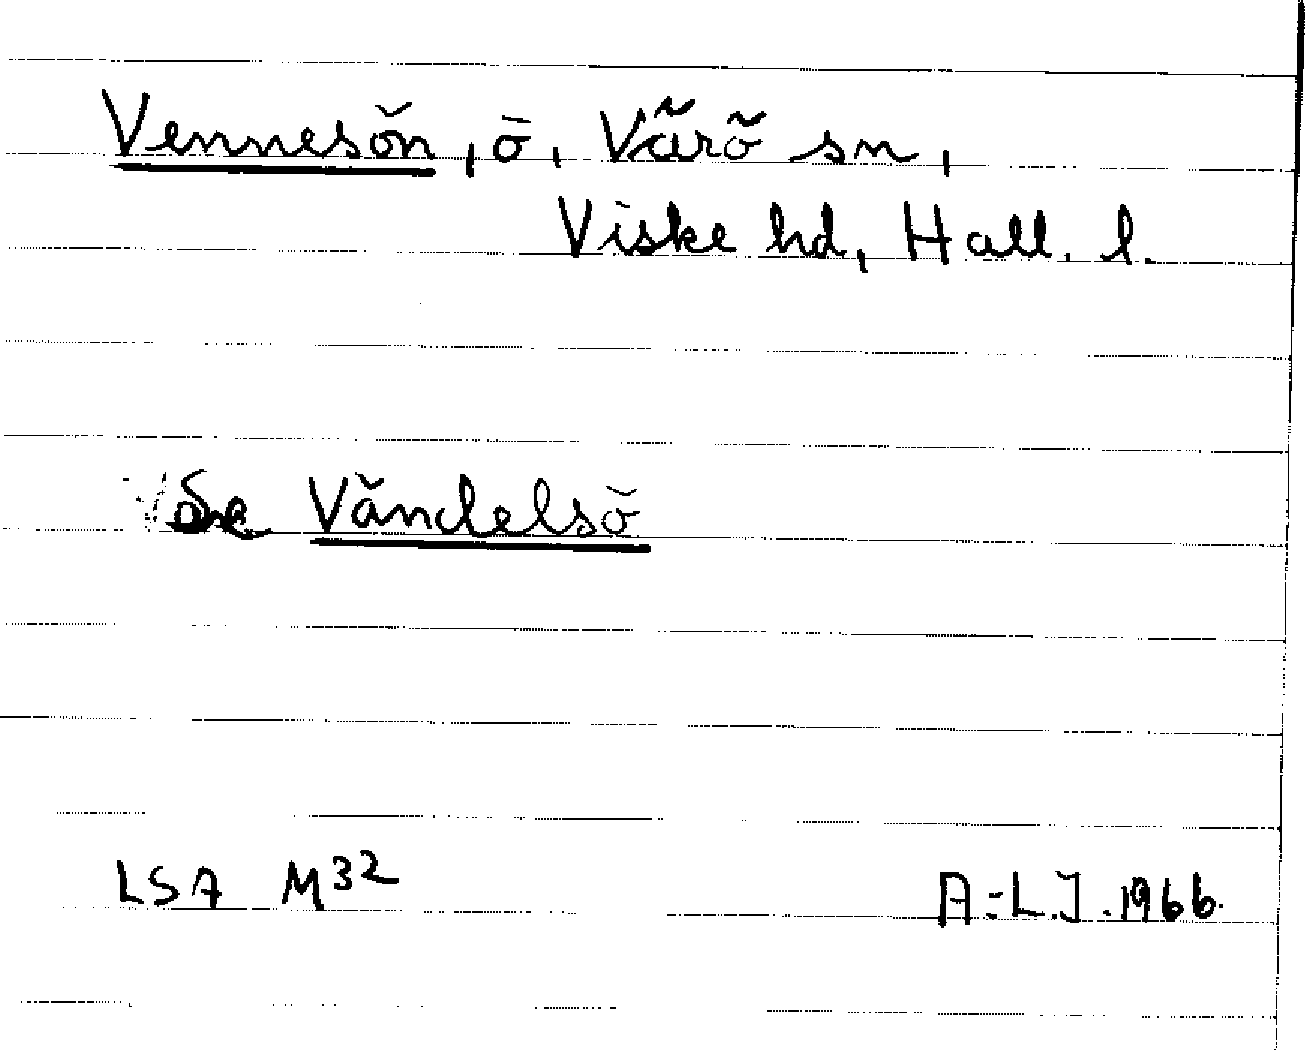 Vennesön, ö, Värö sn,
Viske hd, Hall. l.
Se Vändelsö
LSA M32
A-L.J. 1966.